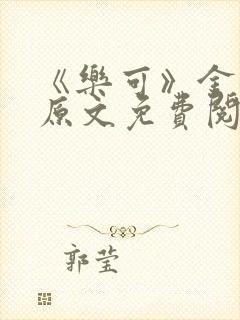 《樂可》金
原文免費閱
郭莹